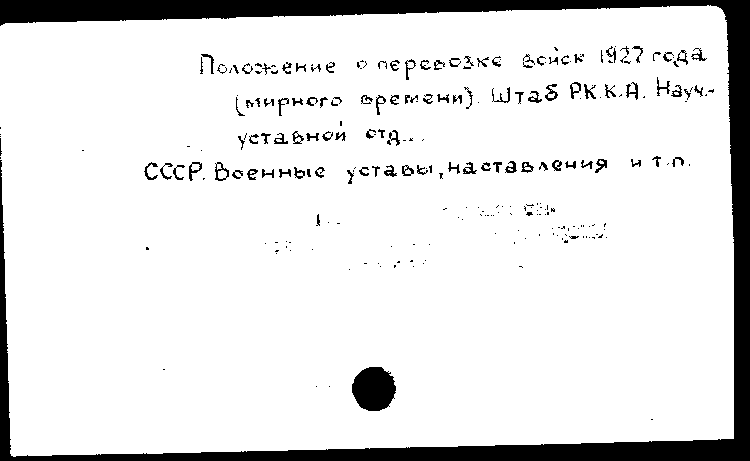 Положение о перевозке войск 1927 года
(мирного времени). Штаб Р.К.К.А. Науч.-
уставной отд...
СССР. Военные уставы, наставления и т.п.